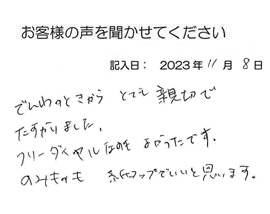 お客様の声を聞かせてください
記入日： 2023年11月8日
でんわのときから とても 親切で
たすかりました。
フリーダイヤルなのも よかったです。
のみものも 紙コップでいいと思います。